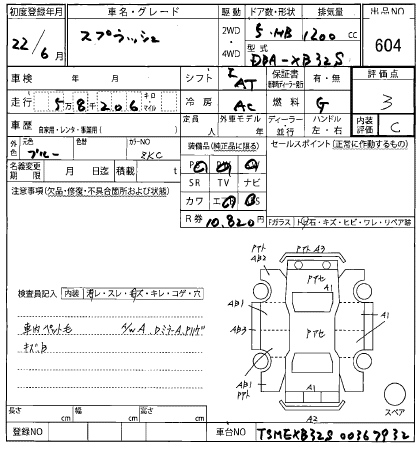 初度登録年月 車名・グレード 駆動 ドア数・形状 排気量 出品NO
22/6 月 スプラッシュ 2WD・4WD 5・HB 1200 cc 604
型式 DBA-XB32S
車検 年 月 シフト IAT 保証書 新車時ディーラー発行 有・無 評価点
走行 5万8千206 キロ マイル 冷房 AC 燃料 G 3
車歴 自家用・レンタ・事業用( ) 定員 外車モデル ディーラー 並行 ハンドル 左・右 内装評価 C
外色 元色 ブルー 色替 カラーNO ZKC 装備品(純正品に限る) セールスポイント(正常に作動するもの)
名義変更期限 月 日 積載 t
SR TV ナビ
注意事項(欠品・修復・不具合箇所および状態) カワ エ
R券 10.820 円 Fガラス トビ石・キズ・ヒビ・ワレ・リペア跡
アト A3
アト AB2 アイセ
A1
検査員記入 内装 汚レ・スレ・キズ・キレ・コゲ・穴
車内ペット毛 N/W A
キズB
AB1 AB1
AB3 アイセ A1
AB1 アト A1
A1
スペア
A2
長さ cm 幅 cm 高さ cm
登録NO 車台NO TSMEXB32S00367932